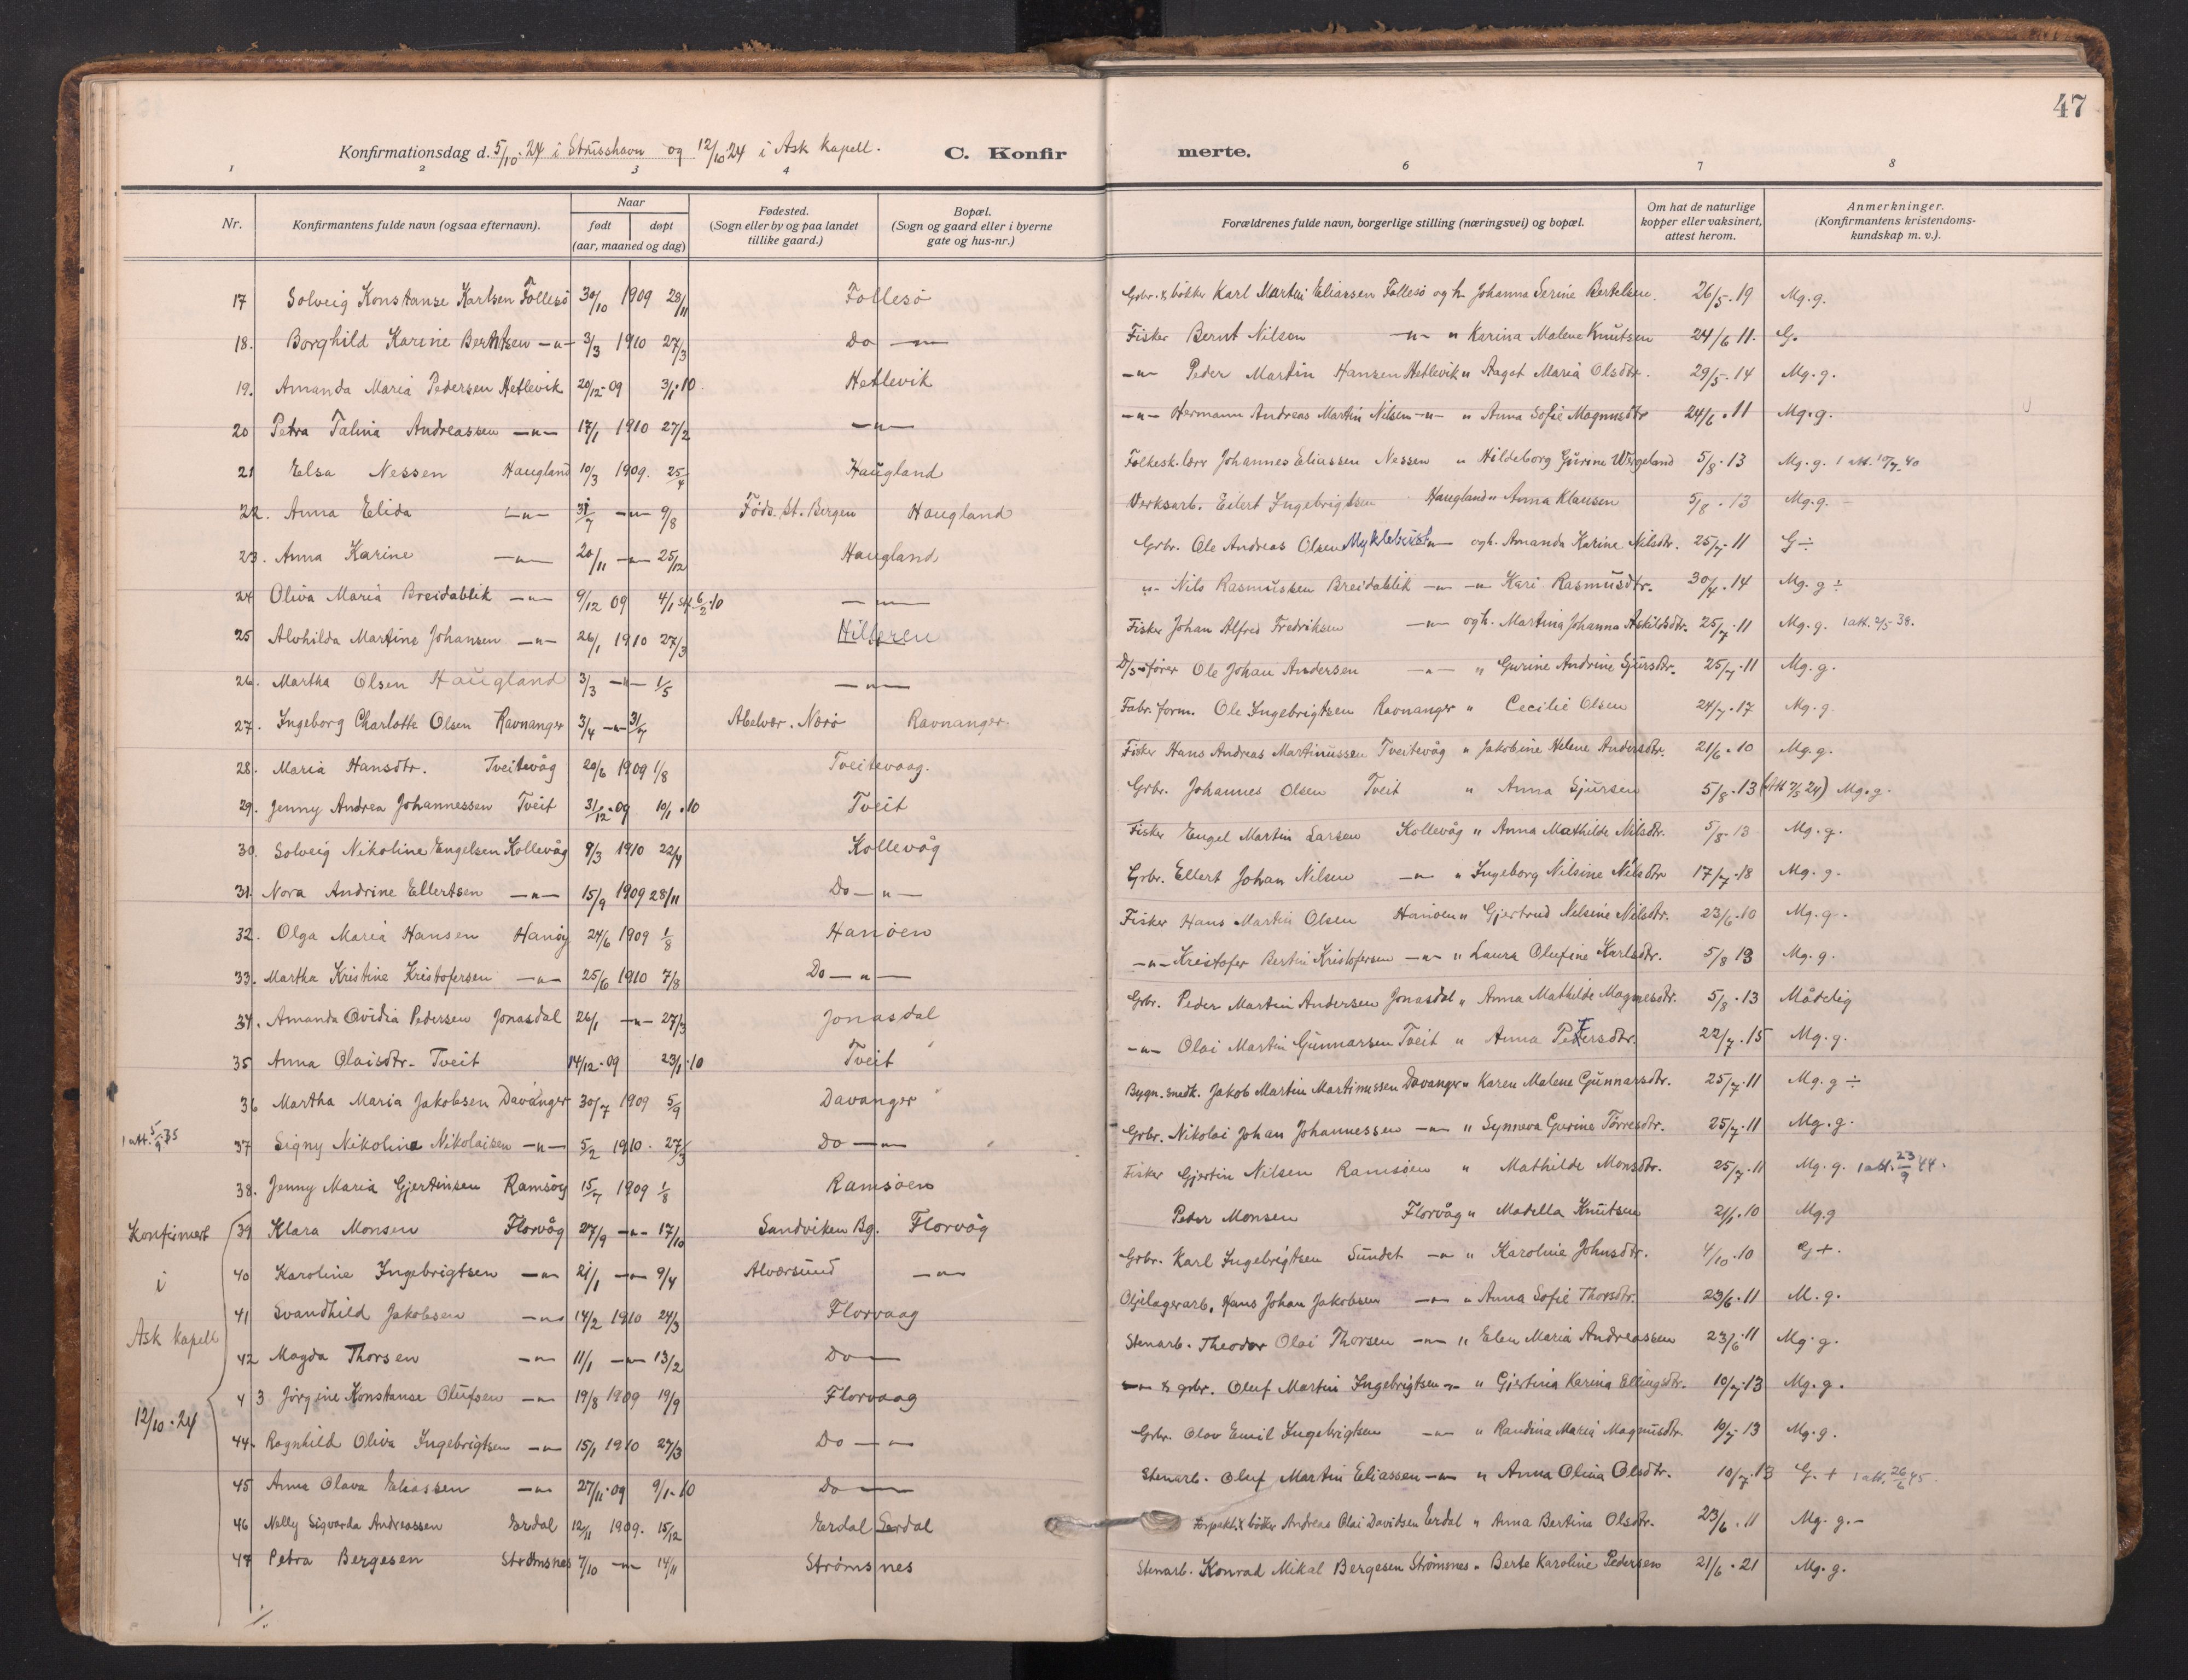 47
Konfirmationsdag d. 5/10-24 i Strusshavn og 12/10-24 i Ask Kapell. C. Konfir merte.
1 2 3 4 6 7 8
Nr. Konfirmantens fulde navn (ogsaa efternavn). Naar født døpt (aar, maaned og dag) Fødested. (Sogn eller by og paa landet tillike gaard.) Bopæl. (Sogn og gaard eller i byerne gate og hus-nr.) Forældrenes fulde navn, borgerlige stilling (næringsvei) og bopæl. Om hat de naturlige kopper eller vaksinert, attest herom. Anmerkninger. (Konfirmantens kristendoms-kundskap m. v.).
17 Solveig Konstanse Karlsen Follesö 30/10 1909 28/11 Follesö Grbr. & bökker Karl Martin Eliassen Follesö og h. Johanna Serine Bertelsen. 26/5.19 Mg.g.
18. Borghild Karine Berntsen -"- 3/3 1910 27/3 Do -"- Fisker Bernt Nilsen -"- " Karina Malene Knutsen 24/6 11. G.
19. Amanda Maria Pedersen Hetlevik 20/12-09 3/1.10 Hetlevik -"- Peder Martin Hansen Hetlevik " Aagot Maria Olsdtr. 29/5.14 Mg.g.
20 Petra Talina Andreassen -"- 17/1 1910 27/2 -"- -"- Hermann Andreas Martin Nilsen -"- " Anna Sofie Magnusdtr 24/6.11 Mg.g.
21 Elsa Nessen Haugland 10/3 1909. 25/4 Haugland Folkesk.lærer Johannes Eliassen Nessen " Hildeborg Gurine Wergeland 5/8.13 Mg.g. 1 att. 10/7.40
22. Anna Elida -"- 31/7 -"- 9/8 Föds.st. Bergen Haugland Verksarb. Eilert Ingebrigtsen Haugland " Anna Klausen 5/8.13 Mg.g.
23. Anna Karine -"- 20/11 -"- 25/12 Haugland Grbr. Ole Andreas Olsen Myklebust -"- og h. Amanda Karine Nilsdtr. 25/7.11 G ÷
24 Oliva Maria Breidablik -"- 9/12 09 4/1 st. 6/2.10 -"- "- Nils Rasmussen Breidablik -"- -"- Kari Rasmusdtr. 30/4.14 Mg.g ÷
25 Alvhilda Martine Johansen -"- 26/1 1910 27/3 Hilleren Fisker Johan Alfred Fredriksen -"- og h. Martina Johanna Askildsdtr. 25/7.11 Mg.g. 1 att. 2/5 38.
26. Martha Olsen Haugland 3/3 -"- 1/5 -"- D/s-förer Ole Johan Andersen -"- " Gurine Andrine Sjursdtr. 25/7.11 Mg.g.
27. Ingeborg Charlotte Olsen Ravnanger 3/4 -"- 31/7 Abelvær. Nærö Ravnanger. Fabr.form. Ole Ingebrigtsen Ravnanger " Cecilie Olsen 24/7.17 Mg.g.
28. Maria Hansdtr. Tveitevåg 20/6 1909 1/8 Tveitevaag. Fisker Hans Andreas Martinussen Tveitevåg " Jakobine Helene Andersdtr. 21/6.10 Mg.g.
29. Jenny Andrea Johannessen Tveit 31/12-09 10/1.10 Tveit Grbr. Johannes Olsen Tveit " Anna Sjursen 5/8.13 (Att 7/5 24) Mg.g.
30. Solveig Nikoline Engelsen Kollevåg 9/3 1910 22/4 Kollevåg Fisker Engel Martin Larsen Kollevåg " Anna Mathilde Nilsdtr. 5/8-13 Mg.g.
31. Nora Andrine Ellertsen -"- 15/9 1909 28/11 Do -"- Grbr. Ellert Johan Nilsen -"- " Ingeborg Nilsine Nilsdtr 17/7.18 Mg.g.
32. Olga Maria Hansen Hanöy 24/6 1909 1/8 Hanöen Fisker Hans Martin Olsen Hanöen " Gjertrud Nilsine Nilsdtr. 23/6.10 Mg.g.
33. Martha Kristine Kristofersen -"- 25/6 1910 7/8 Do -"- -"- Kristofer Bertin Kristofersen -"- " Laura Olufine Karlsdtr. 5/8 13 Mg.g.
34. Amanda Ovidia Pedersen Jonasdal 26/1 -"- 27/3 Jonasdal Grbr. Peder Martin Andersen Jonasdal " Anna Mathilde Magnesdtr. 5/8.13 Mådelig
35 Anna Olaisdtr. Tveit 14/12.09 23/1.10 Tveit -"- Olai Martin Gunnarsen Tveit " Anna Petersdtr. 22/7.15 Mg.g.
36 Martha Maria Jakobsen Davanger 30/7 1909 5/9 Davanger Bygn.snedk. Jakob Martin Martinussen Davanger " Karen Malene Gunnarsdtr. 25/7.11 Mg.g ÷
1 att. 5/9.35 37 Signy Nikoline Nikolaisen -"- 5/2 1910. 27/3 Do -"- Grbr. Nikolai Johan Johannessen -"- " Synneva Gurine Törresdtr. 25/7.11 Mg.g.
38. Jenny Maria Gjertinsen Ramsöy 15/7 1909 1/8 Ramsöen Fisker Gjertin Nilsen Ramsöen " Mathilde Monsdtr. 25/7.11 Mg.g. 1 att. 23/9 44.
Konfirmert i Ask kapell 12/10.24
39 Klara Monsen Florvåg 27/9 -"- 17/10 Sandviken Bg. Florvåg Peder Monsen Florvåg " Madella Knutsen 21/6.10 Mg.g
40 Karoline Ingebrigtsen -"- 21/1 -"- 9/4 Alversund -"- Grbr. Karl Ingebrigtsen Sundet -"- " Karoline Johnsdtr. 4/10.10 G +.
41 Svandhild Jakobsen -"- 14/2 1910 24/3 Florvaag Oljelagerarb. Hans Johan Jakobsen -"- " Anna Sofie Thorsdtr. 23/6.11 M.g.
42 Magda Thorsen -"- 11/1 -"- 13/2 Do Stenarb. Theodor Olai Thorsen -"- " Elen Maria Andreassen 23/6 11 Mg.g.
43 Jörgine Konstanse Olufsen -"- 19/8 1909 19/9 Florvaag -"- & grbr. Oluf Martin Ingebrigtsen -"- " Gjertina Karina Ellingsdtr. 10/7.13 Mg.g.
44. Ragnhild Oliva Ingebrigtsen -"- 15/1 1910 27/3 Do -"- Grbr. Olav Emil Ingebrigtsen -"- " Randina Maria Magnusdtr. 10/7.13 Mg.g.
45 Anna Olava Eliassen -"- 27/11.09 9/1.10 Do Stenarb. Oluf Martin Eliassen -"- " Anna Olina Olsdtr. 10/7.13 G. + 1 att. 26/6 45.
46 Nelly Sigvarda Andreassen Erdal 12/11 1909. 15/12 Erdal Erdal Forpakt. & böker Andreas Olai Davidsen Erdal " Anna Bertina Olsdtr. 23/6.11 Mg.g.-
47 Petra Bergesen Strömsnes 7/10 -"- 14/11 Strömsnes Stenarb. Konrad Mikal Bergesen Strömsnes " Berte Karoline Pedersen 21/6.21 Mg.g.